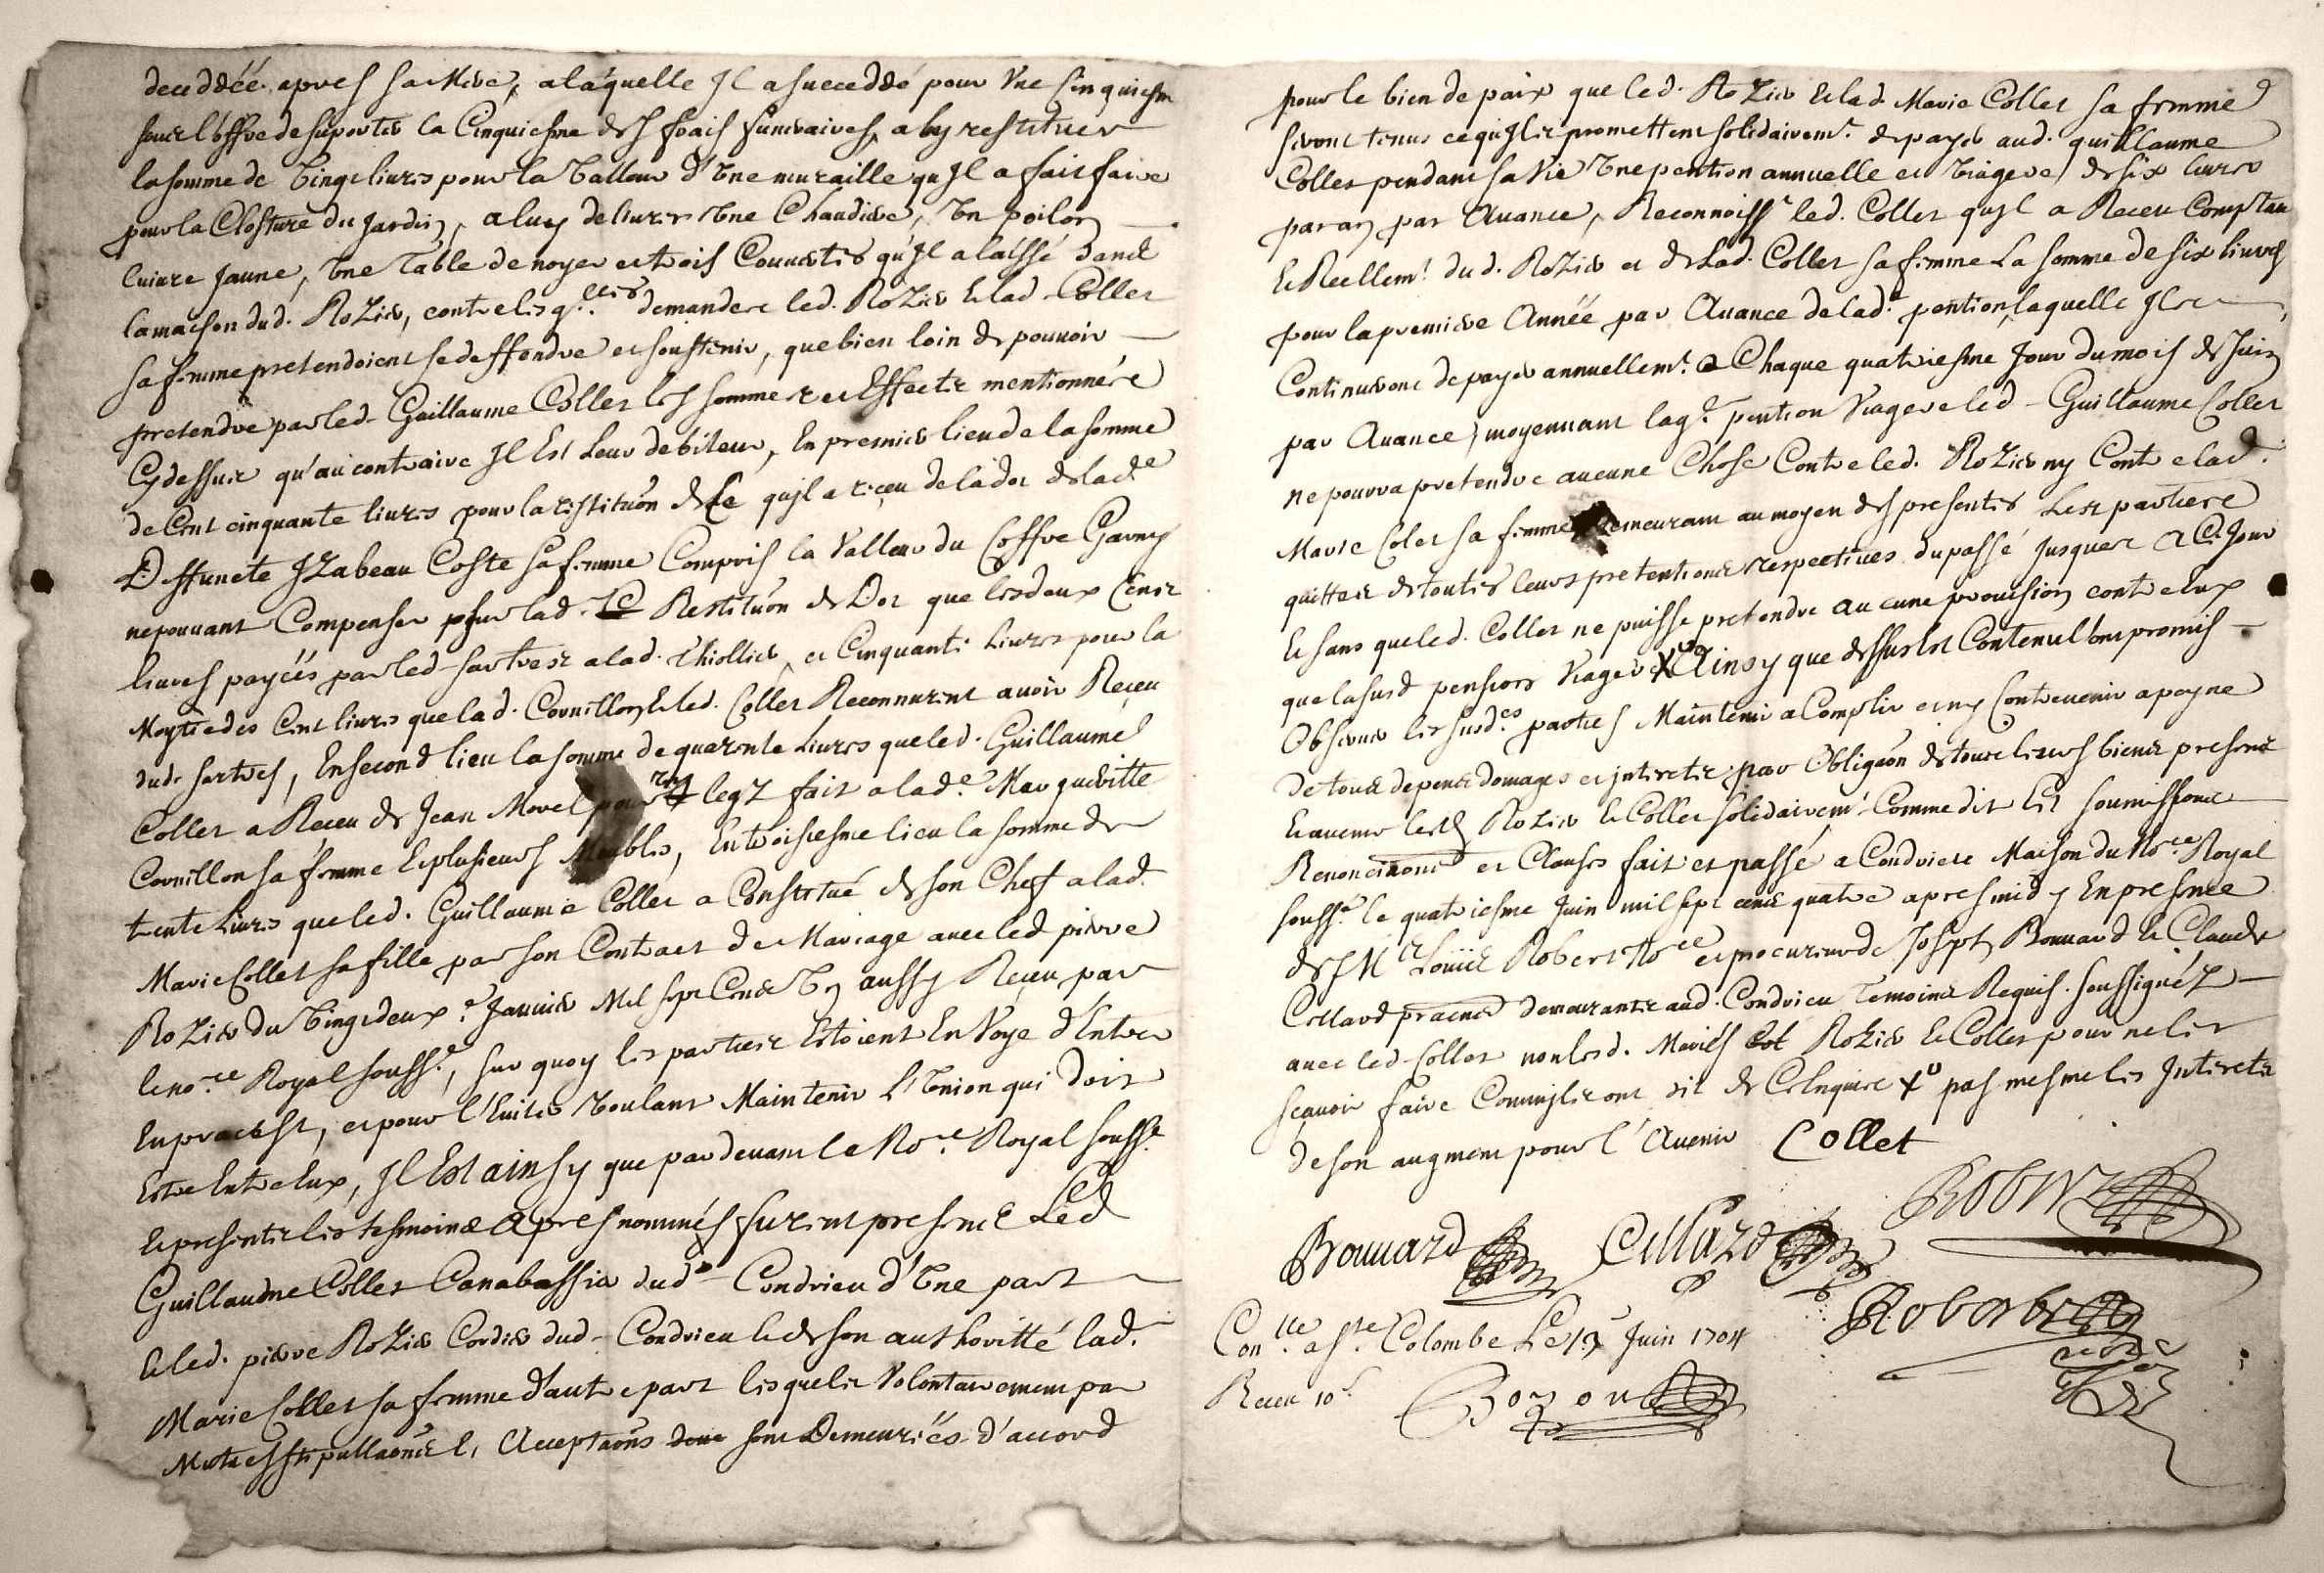 deceddéé apres sa Mere, a laquelle Jl a succeddé pour Une Cinquiesm
soubz l'offre de suporter la Cinquiesme des frais funeraires, a luy restituer
la somme de Vingt livres pour la Valleur d'Une muraille qu'Jl a fait faire
pour la Closture du Jardin, a luy delivrer Une Chaudiere, Un poilon
Cuivre Jaune, Une Table de noyer et trois Couvertes qu'Jl a laissé dans
la maison dud. Rozier, contre lesq.lles demandes led. Rozier & lad. Collet
sa femme pretendoient se deffendre et soustenir, que bien loin de pouvoir
pretendre par led. Guillaume Collet les sommes et Effects mentionnés
Cydessus qu'au contraire Jl Est Leur debiteur, En premier lieu de la somme
de Cent cinquante livres pour la restituon de Ce qu'jl a reçeu de la dot de lad.e
Deffuncte Jzabeau Coste sa femme Compris la Valleur du Coffre Garny
ne pouvant Compenser pour lad. Restituon de Dot que les deux Cents
livres payéés par led. sartres a lad. Thiollier, et Cinquante Livres pour la
Moytié des Cent livres que lad. Cornillon & led. Collet Reconnurent avoir Reçeu
dud. sartres, En second lieu la somme de quarente Livres que led. Guillaume
Collet a Receu de Jean Morel pour Un legz fait a lad.e Margueritte
Cornillon sa femme & plusieurs Meubles, En troisiesme lieu la somme de
trente Livres que led. Guillaume Collet a Constitué de son Chef a lad.
Marie Collet sa fille par son Contract de Mariage avec led. pierre
Rozier du Vingt deux.e Janvier Mil sept Cents Un aussy Reçeu par
le no.re Royal souss.é, sur quoy les parties Estoient En Voye d'Entrer
En proces, et pour l'Eviter Voulant Maintenir L'Union qui doit
Estre Entre Eux, Jl Est ainsy que pardevant le No.re Royal souss.é
& presents les tesmoins Apres nommés furent presents Led
Guillaume Collet Canabassier dud. Condrieu d'Une part
& led. pierre Rozier Cordier dud. Condrieu & de son authoritté lad.
Marie Collet sa femme d'autre part lesquels Volontairement par
Mutuelles stipullaons & Acceptaons sont Demeuréés d'accord
pour le bien de paix que led. Rozier & lad. Marie Collet sa femme
seront tenus ce qu'Jls promettent solidairem.t de payer aud. guillaume
Collet pendant sa Vie Une pention annuelle et Viagere de six livres
par an par Avance, Reconnoiss.t led. Collet qu'jl a Receu Comptan
& Reellem.t dud. Rozier et de Lad. Collet sa femme La somme de six livres
pour la premiere Année par Avance de lad.e pention, laquelle Jls
Continueront de payer annuellem.t a Chaque quatriesme Jour du mois de Juin
par Avance, moyennant laq.e pention Viagere led. Guillaume Collet
ne pourra pretendre aucune Chose Contre led. Rozier ny Contre lad.
Marie Colet sa femme demeurant au moyen des presentes Les parties
quittes de toutes leurs pretentions respectives du passé Jusques a Ce Jour
& sans que led. Collet ne puisse pretendre aucune provision contre Eux
que la susd. pension Viagere X Ainsy que dessus Est Contenu l'ont promis
Observer les susd.es parties Maintenir acomplir et ny Contrevenir a peyne
De tous depens domages et jnterets par Obligaon de tous leurs biens presents
& avenir lesd. Rozier & Collet solidairem.t Comme dit Est soumissions
Renonciaons et Clauses fait et passé a Condrieu Maison du No.re Royal
souss.é le quatriesme Juin mil sept cens quatre apres midy En presence
de s.r M.e Loüis Robert No.re et procureur de Joseph Bonnard & Claude
Collard demeurants aud. Condrieu Temoins Requis soussignéz
avec led. Collet non lesd. Mariés Rozier & Collet pour ne les
scavoir faire Comme jls ont dit de Ce Enquis X pas mesme les Jnterets
de son augment pour l'Avenir Collet
Robert
Bonnard Collard
Robert
Con.lle a S.te Colombe Le 13 Juin 1704
Receu 10 s